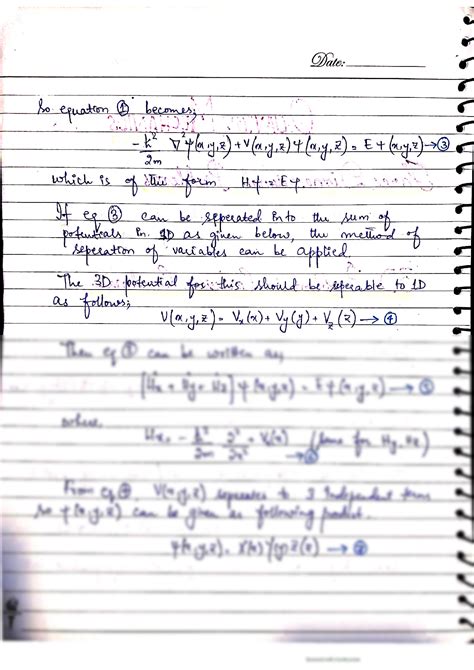 Date:
So equation ① becomes;
-ħ²/2m ∇²ψ(x,y,z) + V(x,y,z) ψ(x,y,z) = E ψ(x,y,z) → ③
which is of the form Hψ = Eψ.
If eq ③ can be seperated into the sum of
potentials in 1D as given below, the method of
seperation of variables can be applied.
The 3D potential for this should be seperable to 1D
as follows;
V(x,y,z) = Vx(x) + Vy(y) + Vz(z) → ④
Then eq ③ can be written as;
[Hx + Hy + Hz] ψ(x,y,z) = E ψ(x,y,z) → ⑤
where,
Hx = -ħ²/2m ∂²/∂x² + Vx(x) (Same for Hy, Hz)
→ ⑥
From eq ④, V(x,y,z) seperates to 3 Independent terms
so ψ(x,y,z) can be given as following product.
ψ(x,y,z) = X(x) Y(y) Z(z) → ⑦